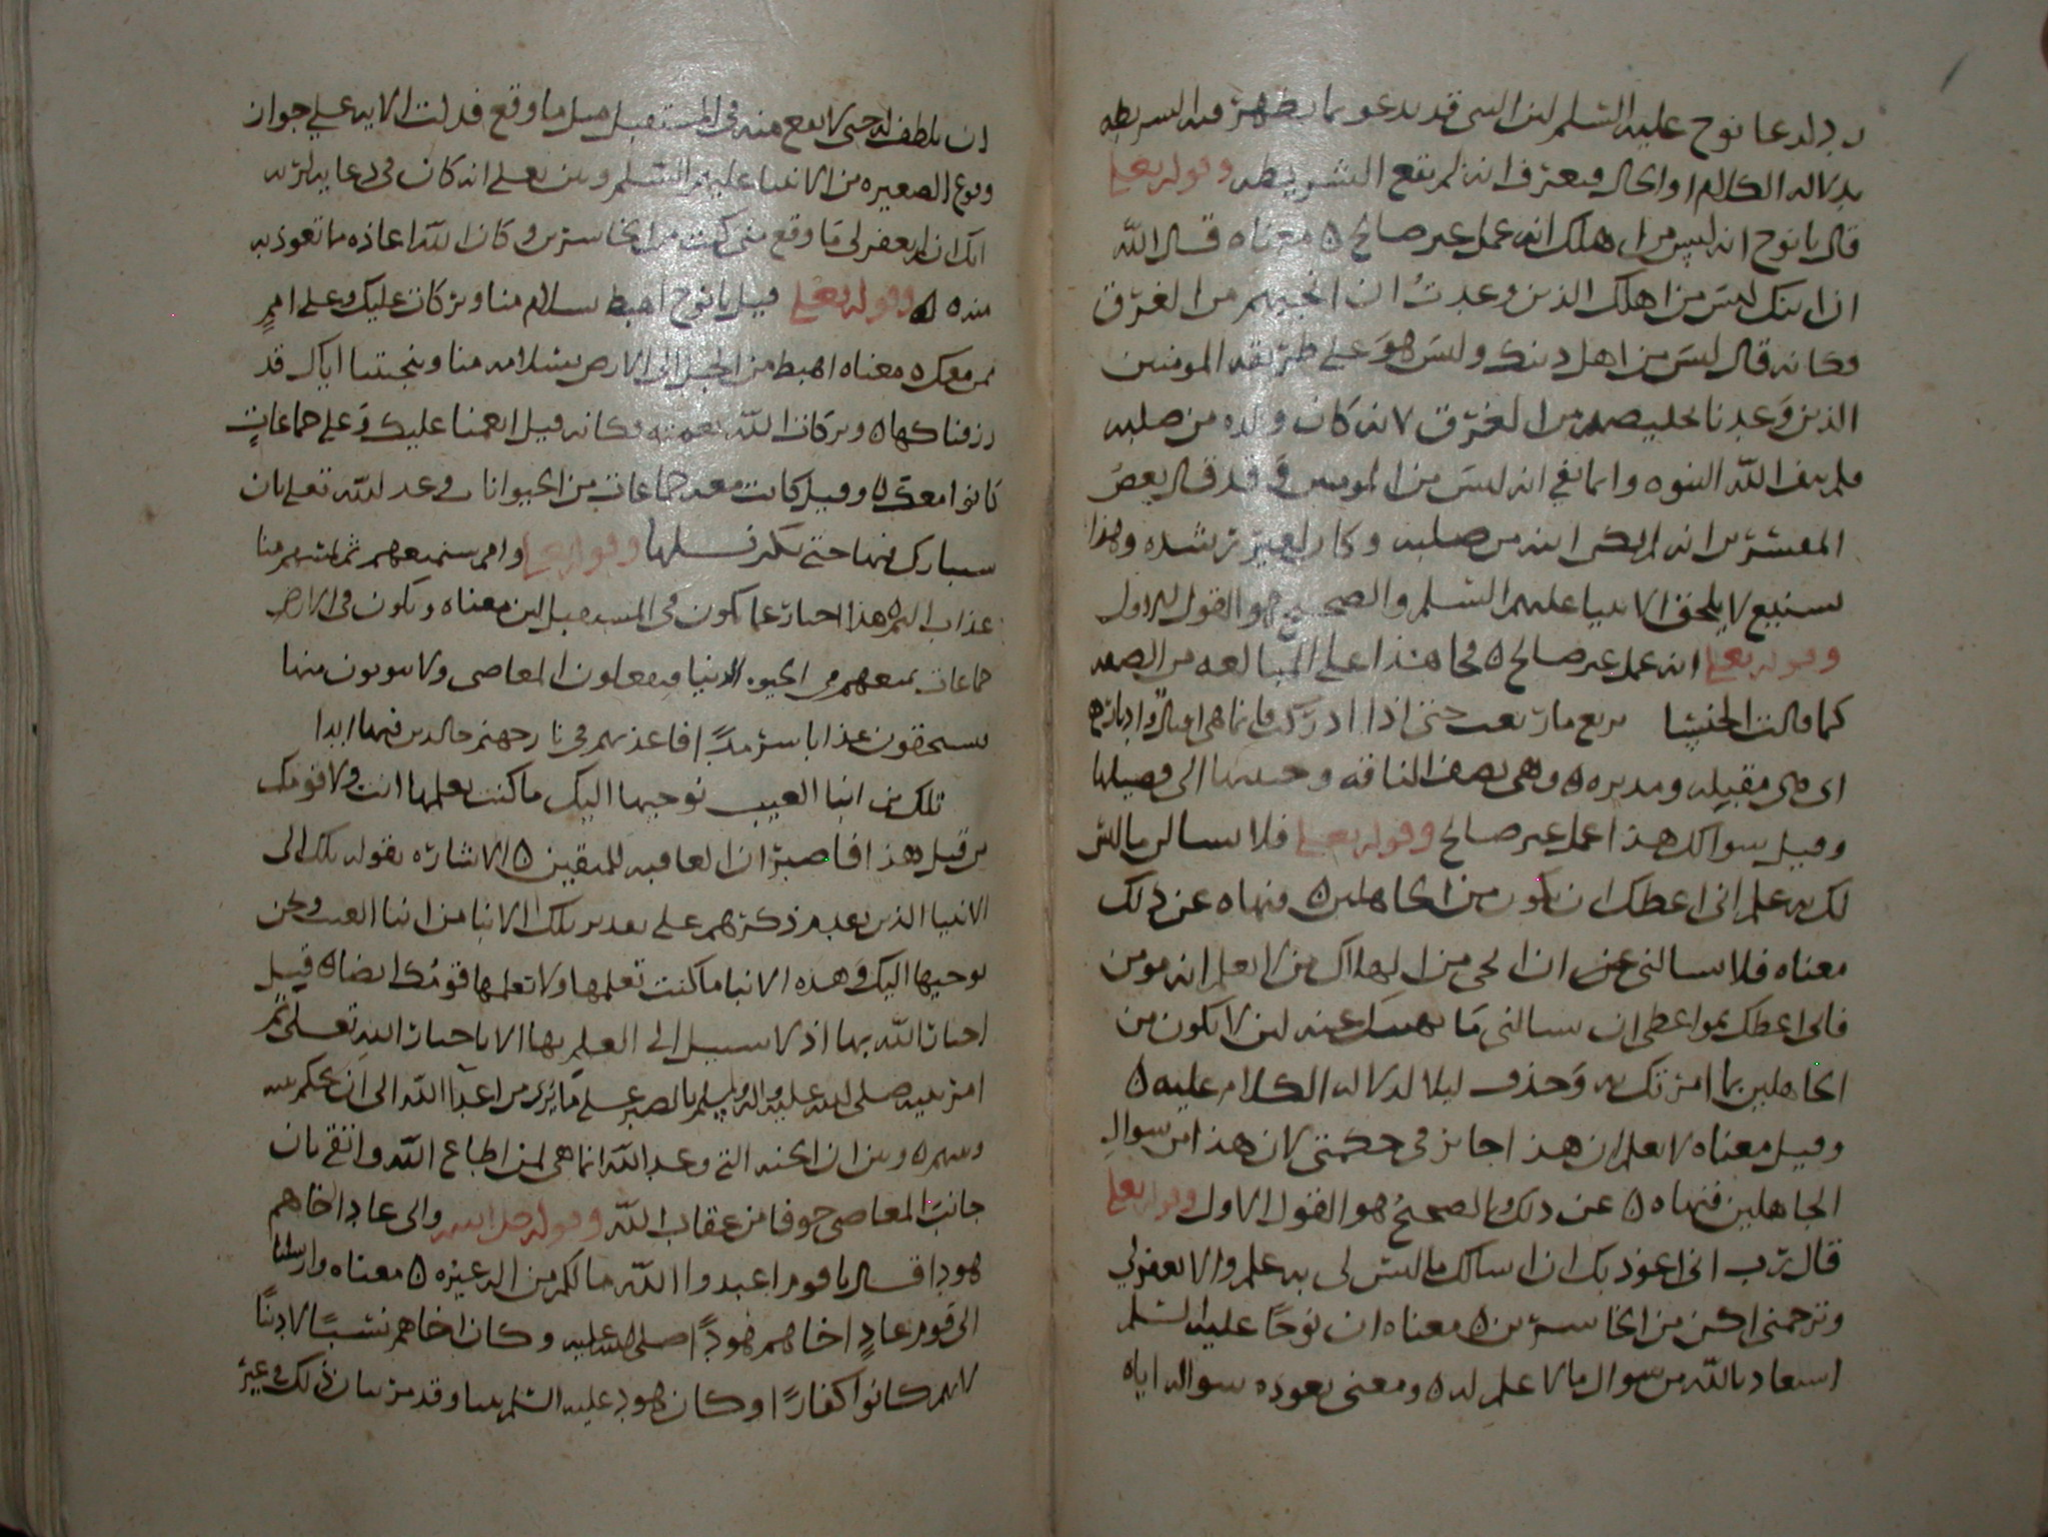 لدعا نوح عليه السلم لان النبي قد يدعو بما يظهر فيه الشريطه
بدلاله الكلام او الحال ويعرف انه لم يقع الشريطه وقوله تعلى
قال يا نوح انه ليس من اهلك انه عمل غير صالح ه معناه قال الله
ان ابنك ليس من اهلك الذين وعدت ان انجيهم من الغرق
وكانه قال ليس من اهل دينك وليس هو على طريقه المومنين
الذين وعدنا تخليصهم من الغرق لانه كان ولده من صلبه
فلم ينف الله البنوه وانما نفى انه ليس من المومنين وقد قال بعض
المفسرين انه لم يكن ابنه من صلبه وكان لغير رشده وهذا
شنيع لا يلحق الانبيا عليهم السلم والصحيح هو القول الاول
وقوله تعلى انه عمل غير صالح ه فجا هذا على المبالغه من الصفه
كما قالت الخنسا ترتع ما رتعت حتى اذا ادركت فانما هي اقبال وادبار
اى هى مقبله ومدبره ه وهى تصف الناقه وحنينها الى فصيلها
وقيل سوالك هذا عمل غير صالح وقوله تعلى فلا تسالن ما ليس
لك به علم انى اعظك ان تكون من الجاهلين ه فنهاه عن ذلك
معناه فلا تسالنى عن ان انجى من الهلاك من لا تعلم انه مومن
فانى اعظك بمواعظى ان تسالنى ما نهيتك عنه لان لا تكون من
الجاهلين بما امرتك به وحذف ليلا لدلاله الكلام عليه ه
وقيل معناه لا تعلم ان هذا جائز فى حكمتى لان هذا من سوال
الجاهلين فنهاه ه عن ذلك والصحيح هو القول الاول وقوله تعلى
قال رب انى اعوذ بك ان اسالك ما ليس لى به علم والا تغفر لى
وترحمنى اكن من الخاسرين ه معناه ان نوحا عليه السلم
استعاذ بالله من سوال ما لا علم له ه ومعنى تعوذه سواله اياه
ان يلطف له حتى لا يقع منه فى المستقبل مثل ما وقع فدلت الايه على جواز
وقوع الصغيره من الانبيا عليهم السلم وبين تعلى انه كان فى دعايه لربه
انك ان لم تغفر لى ما وقع منى كنت من الخاسرين وكان الله اعاذه مما تعوذ به
منه ه وقوله تعلى قيل يا نوح اهبط بسلام منا وبركات عليك وعلى امم
ممن معك ه معناه اهبط من الجبل الى الارض بسلامه منا ونجيتنا اياك قد
رزقناكها ه وبركات الله نعمته وكانه قيل انعمنا عليك وعلى جماعات
كانوا معك ه وقيل كانت معه جماعات من الحيوانات وعد الله تعلى بان
سيبارك فيها حتى يكثر نسلها وقوله تعلى وامم سنمتعهم ثم يمسهم منا
عذاب اليم ه هذا اخبار عما يكون فى المستقبل لان معناه ويكون فى الارض
جماعات نمتعهم من الحيوه الدنيا فيفعلون المعاصى ولا يتوبون منها
يستحقون عذابا سرمدا فاعذبهم فى نار جهنم خالدين فيها ابدا
تلك من انبا الغيب نوحيها اليك ما كنت تعلمها انت ولا قومك
من قبل هذا فاصبر ان العاقبه للمتقين ه الاشاره بقوله تلك الى
الانبيا الذين تقدم ذكرهم على تقدير تلك الانبا من انبا الغيب ونحن
نوحيها اليك وهذه الانبا ما كنت تعلمها ولا تعلمها قومك ايضا ه قبل
اخبار الله بها اذ لا سبيل الى العلم بها الا باخبار الله تعلى ثم
امر نبيه صلى الله عليه واله وسلم بالصبر على ما يرى من اعدا الله الى ان يحكم بينه
وبينهم ه وبين ان الجنه التي وعد الله انما هى لمن اطاع الله واتقى بان
جانب المعاصى خوفا من عقاب الله وقوله جل اسمه والى عاد اخاهم
هودا قال يا قوم اعبدوا الله ما لكم من اله غيره ه معناه وارسلنا
الى قوم عاد اخاهم هودا صلى الله عليه وكان اخاهم نسبا لا دينا
لانهم كانوا كفارا وكان هود عليه السلم نبيا وقد مر بيان ذلك فى غير